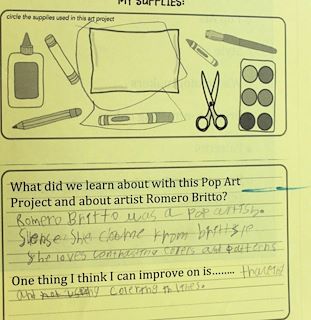 MY SUPPLIES:
circle the supplies used in this art project
What did we learn about with this Pop Art
Project and about artist Romero Britto?
Romero Britto was a pop artist.
She from
She loves contrasting colers and patterns
One thing I think I can improve on is........
and coloring in lines.